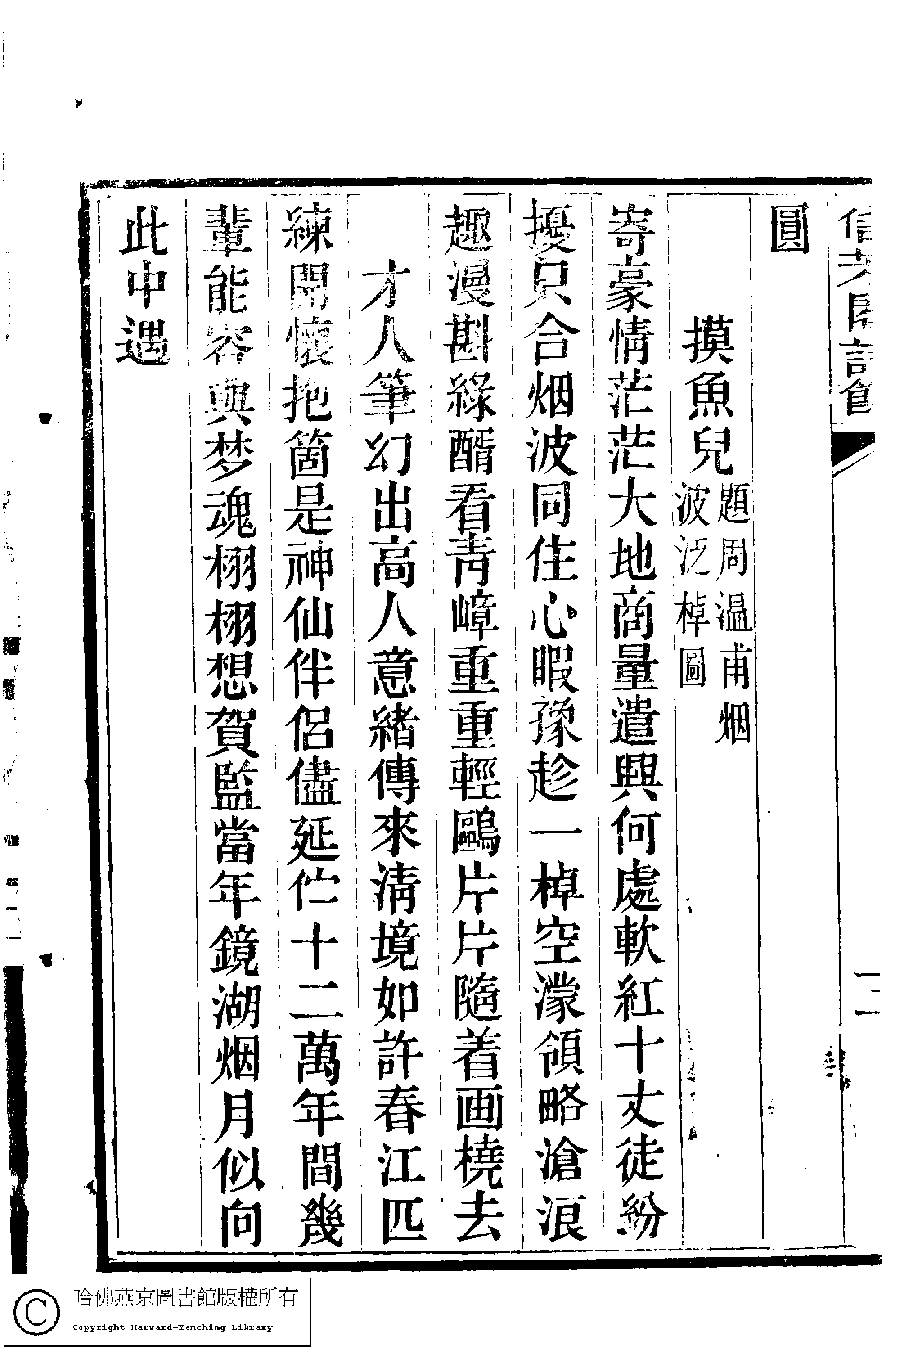 信芳閣詩餘
二
圓
摸魚兒 題周溫甫烟
波泛棹圖
寄豪情茫茫大地商量遣興何處軟紅十丈徒紛
擾只合烟波同住心暇豫趁一棹空濛領略滄浪
趣漫斟綠醑看青嶂重重輕鷗片片隨着画橈去
才人筆幻出高人意緒傳來清境如許春江匹
練開懷抱箇是神仙伴侶儘延伫十二萬年間幾
輩能容與梦魂栩栩想賀監當年鏡湖烟月似向
此中遇
哈佛燕京圖書館版權所有
Copyright Harvard-Yenching Library